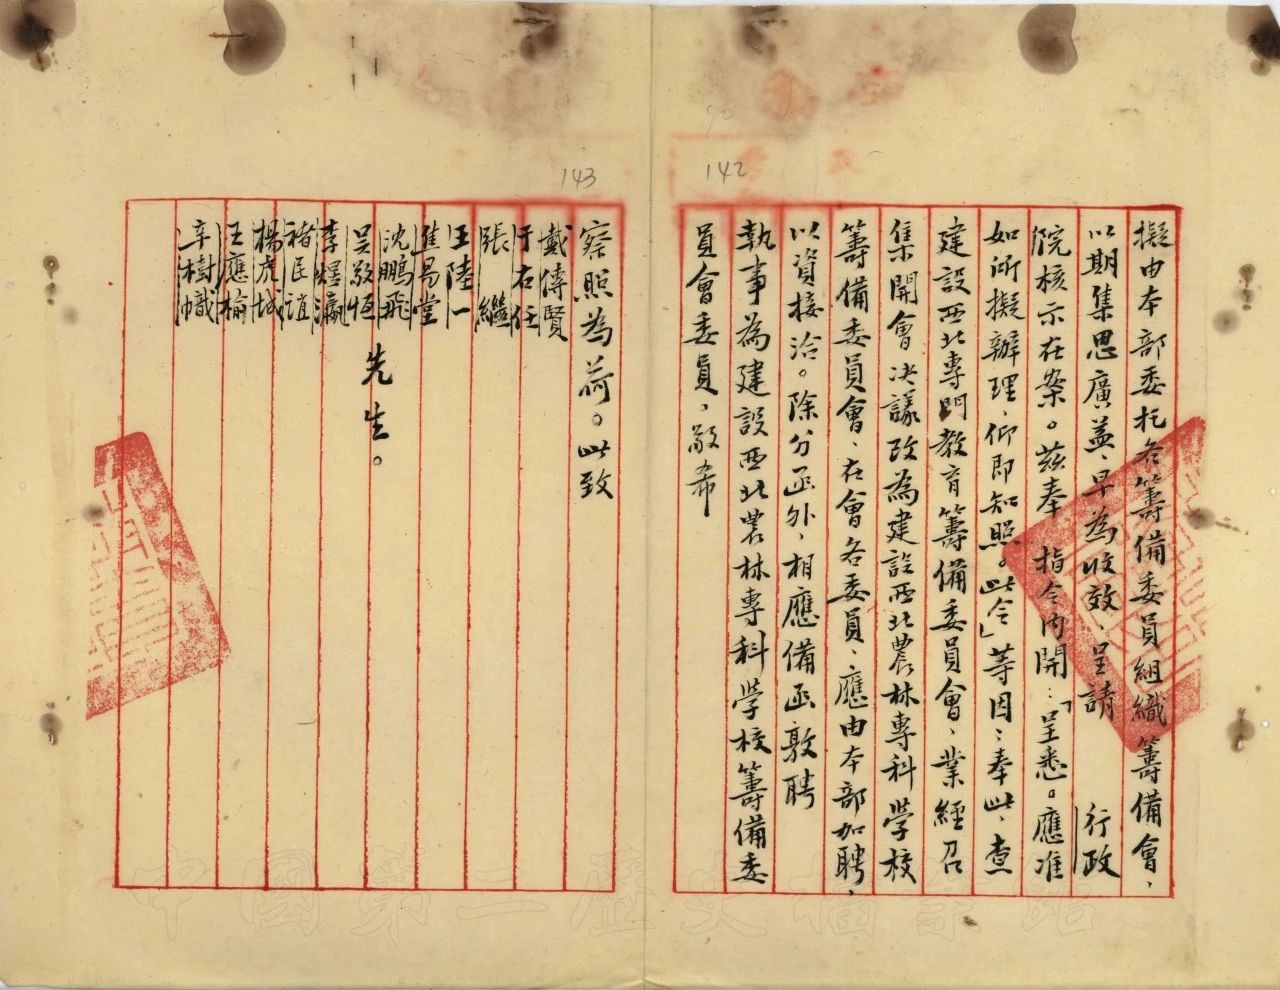 擬由本部委托各籌備委員組織籌備會、
以期集思廣益、早為收效、呈請 行政
院核示在案。茲奉 指令內開:「呈悉。應准
如所擬辦理、仰即知照。此令」等因;奉此、查
建設西北專門教育籌備委員會、業經召
集開會決議改為建設西北農林專科學校
籌備委員會、在會各委員、應由本部加聘、
以資接洽。除分函外、相應備函敦聘
執事為建設西北農林專科學校籌備委
員會委員、敬希
察照為荷。此致
戴傳賢
于右任
張繼
王陸一
焦易堂
沈鵬飛 先生。
吳敬恆
李煜瀛
褚民誼
楊虎城
王應榆
辛樹幟
142
143
中國第二歷史檔案館